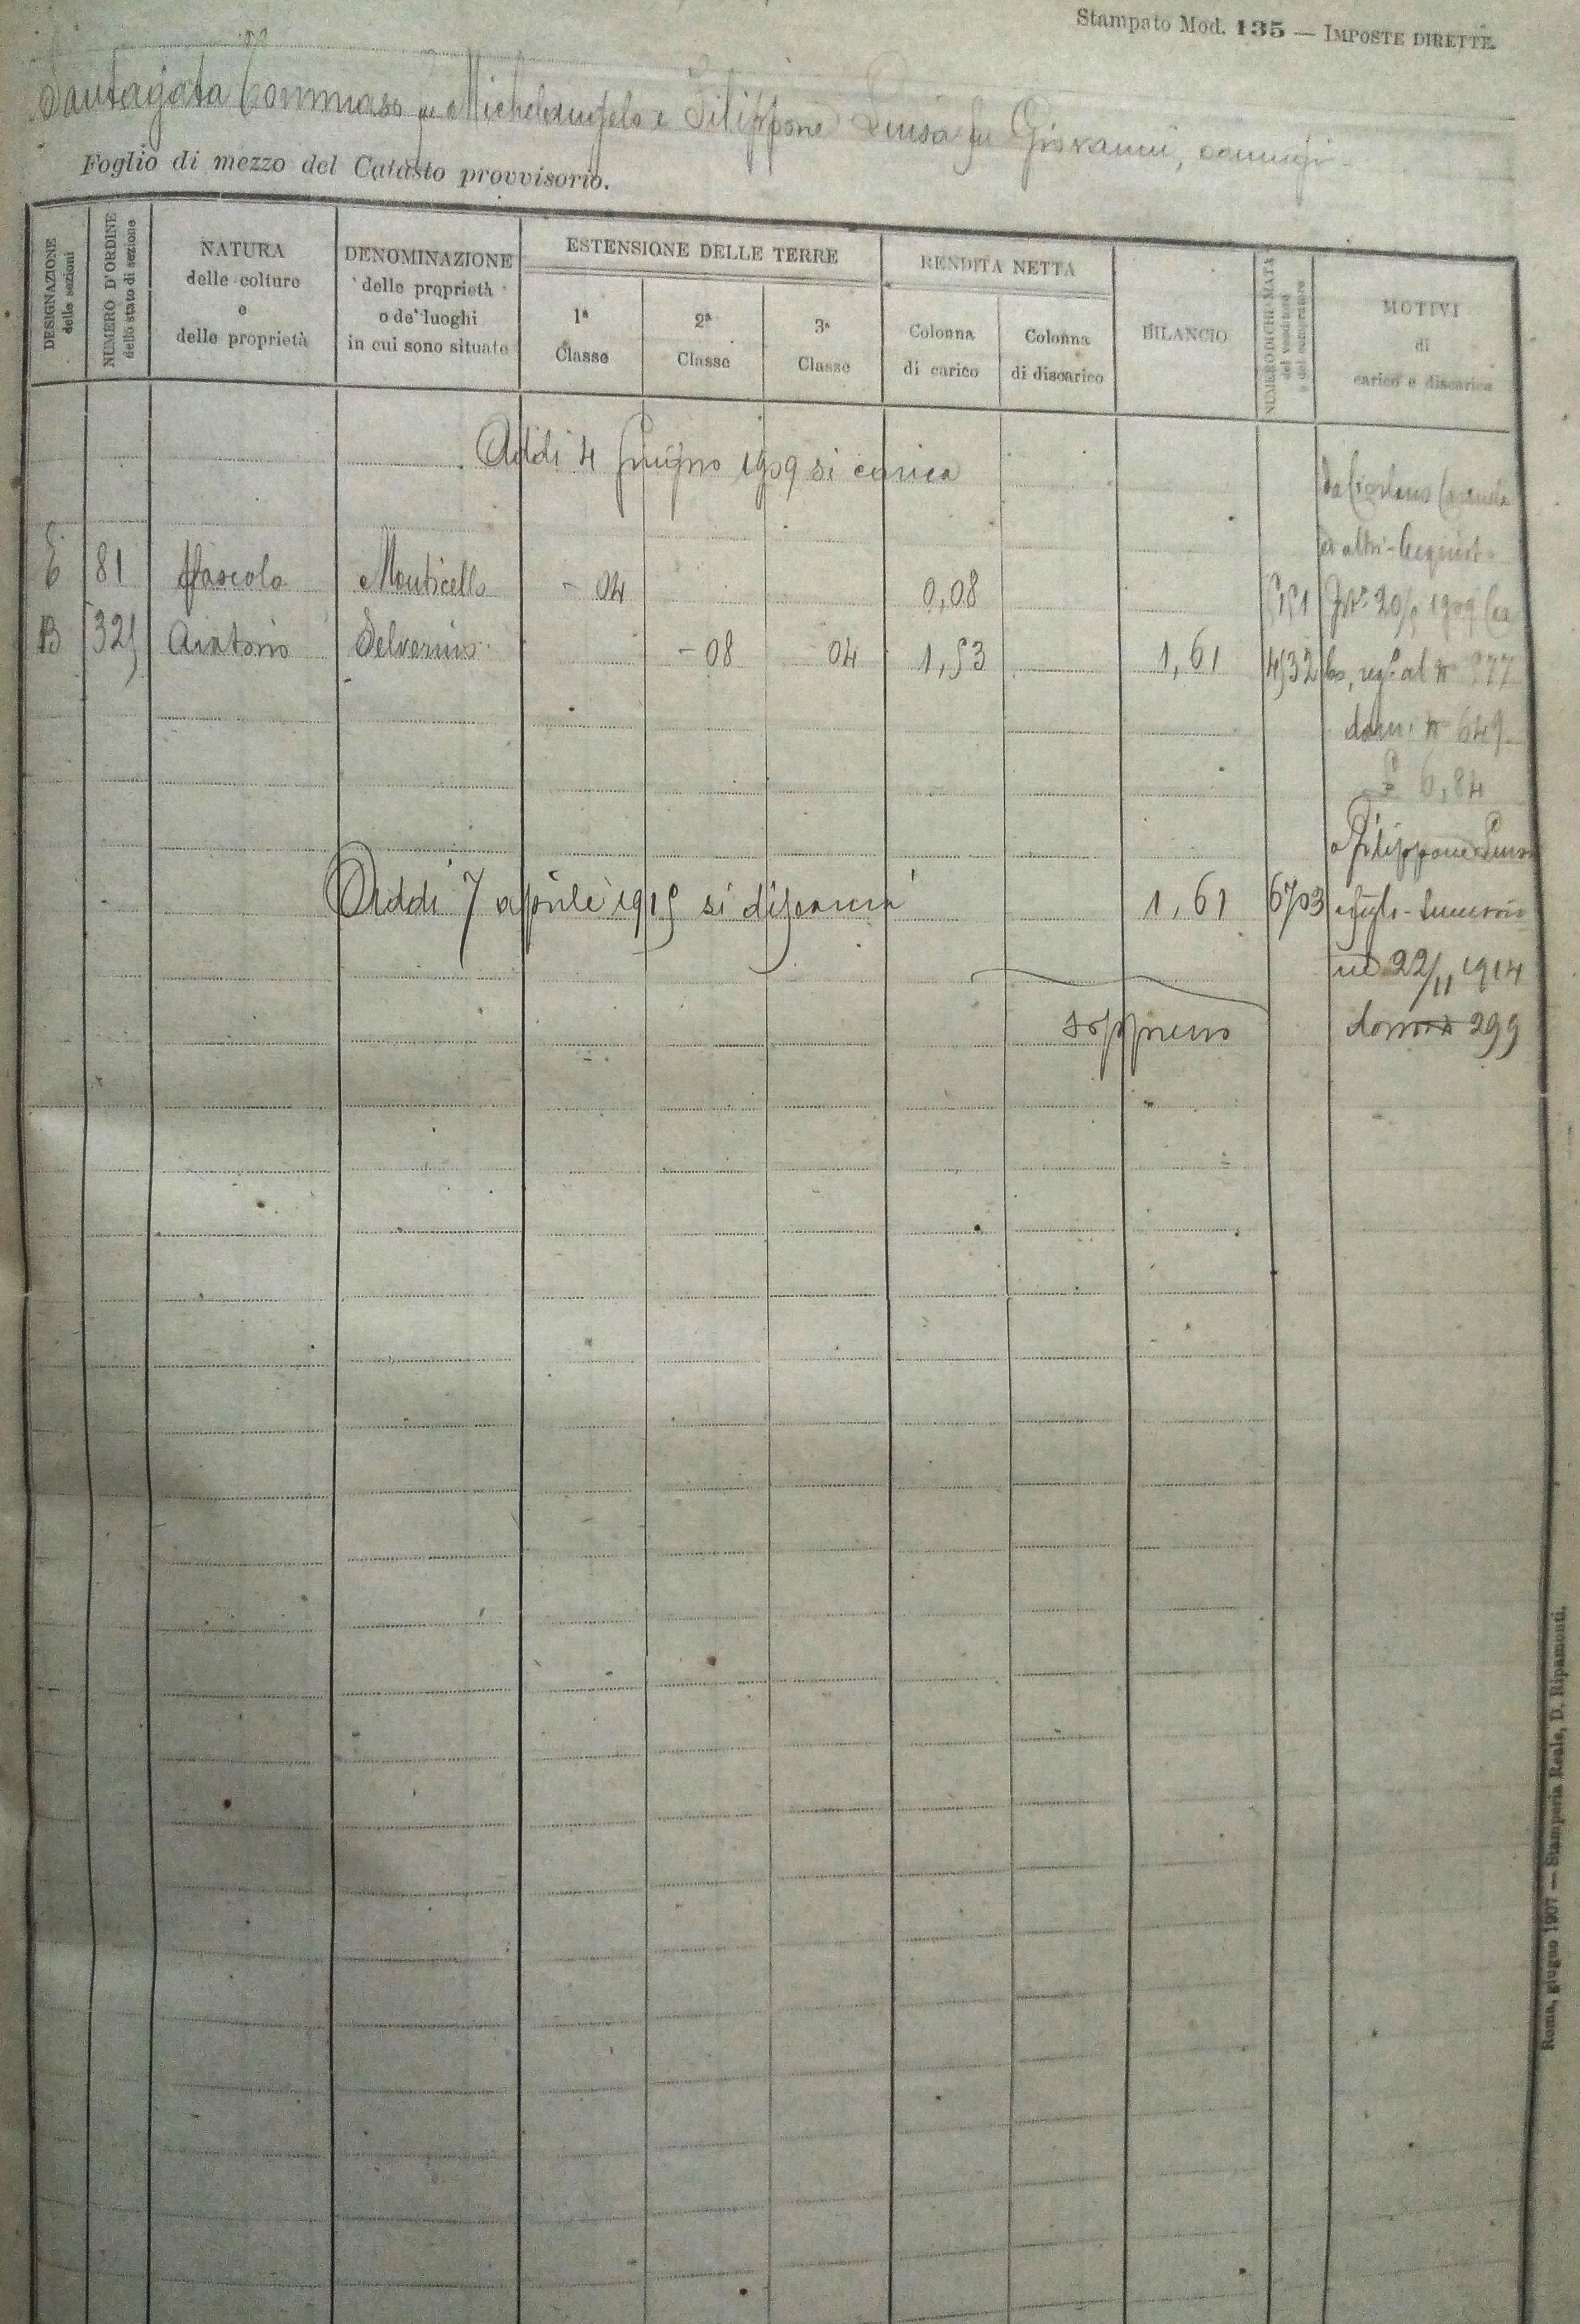 Stampato Mod. 135 — IMPOSTE DIRETTE.
Santagata Tommaso fu Michelangelo e Filippone Luisa fu Giovanni, coniugi
Foglio di mezzo del Catasto provvisorio.
DESIGNAZIONE delle sezioni
NUMERO D'ORDINE dello stato di sezione
NATURA
delle colture
e
delle proprietà
DENOMINAZIONE
delle proprietà
o de' luoghi
in cui sono situate
ESTENSIONE DELLE TERRE
1ª
Classe
2ª
Classe
3ª
Classe
RENDITA NETTA
Colonna
di carico
Colonna
di discarico
BILANCIO
NUMERO DI CHIAMATA
del venditore
o del compratore
MOTIVI
di
carico e discarico
Addì 4 giugno 1909 si carica
ed altri - Acquisto
E 81 Pascolo Monticello - 04 0,08
B 325 Aratorio - 08 04 1,53 1,61 4532
reg.º al Nº 777
dom. Nº 649
£ 6,84
a Filippone Luisa
Addì 7 aprile 1915 si discarica 1,61 6703 e figli - Successio
ne 22/11 1914
soppresso dom. 299
Roma, giugno 1907 — Stamperia Reale, D. Ripamonti.